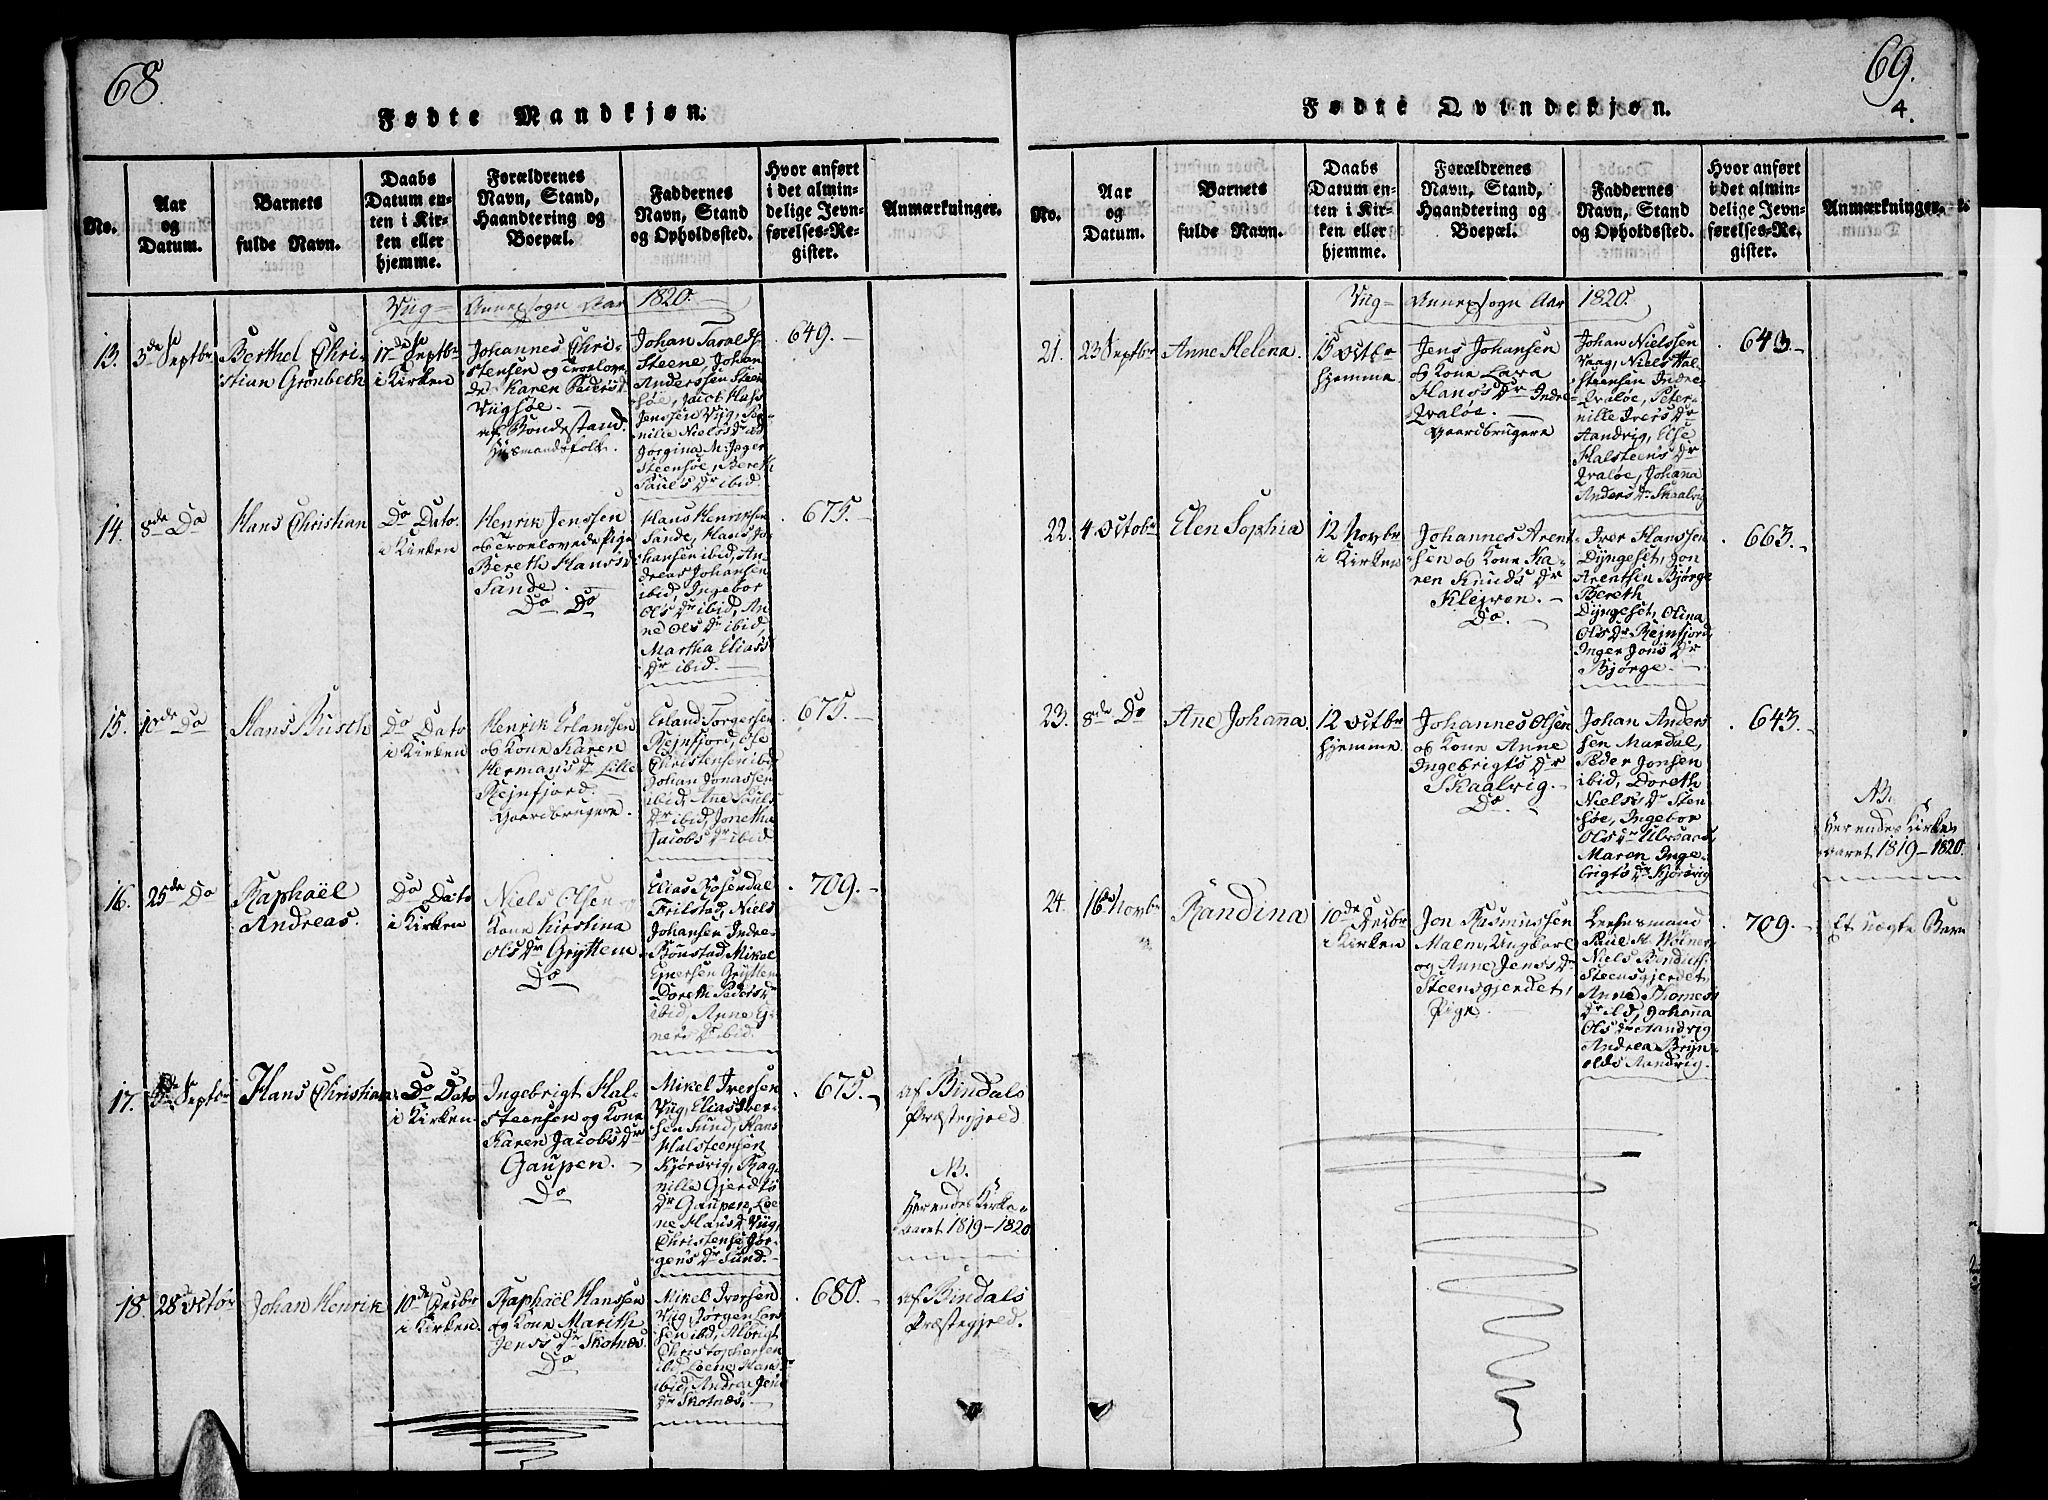 68.
Fødte Mandkjøn.
No.
Aar
og
Datum.
Barnets
fulde Navn.
Daabs
Datum en-
ten i Kir-
ken eller
hjemme.
Forældrenes
Navn, Stand,
Haandtering og
Boepæl.
Faddernes
Navn, Stand
og Opholdssted.
Hvor anført
i det almin-
delige Jevn-
førelses-Re-
gister.
Anmærkninger.
Viig - Annexsogn Aar 1820.
13.
3de Septbr
Berthel Chri-
stian Grönbeth
17de Septbr
i Kirken
Johannes Chri-
stensen og Trolov
Karen Peders Dr
Viigsøe.
Bondestand.
Huusmandsfolk.
Johan Taralds
Steene, Johan
Anderssen Steen
søe, Jacob
Jenssen Viig,
Niels Dr
Jorgina M. Jæger
Steensøe, Bereth
Pauls Dr ibid.
649.
14.
8de Do
Hans Christian
Do Dato
i Kirken
Henrik Jenssen
og Trolovede Pige
Bereth Hans Dr
Sande.
Do Do
Hans Henriksen
Sande, Hans Jo-
hansen ibid, An-
dreas Johansen
ibid, Ingebor
Ols Dr ibid, An-
ne Ols Dr ibid,
Martha Elias
Dr ibid.
675.
15.
10de Do
Hans Busch
Do Dato
i Kirken
Henrik Erlandsen
og Kone Karen
Hermans Dr Lille
Rejnfjord.
Gaardbrugere.
Erland Torgersen
Rejnfjord, Ole
Christensen ibid
Johan Jonassen
ibid, Ane Pauls
Dr ibid, Jonetha
Jacobs Dr ibid
675.
16.
25de Do
Raphaël
Andreas.
Do Dato
i Kirken
Niels Olsen og
Kone Kirstina
Ols Dr Gryttem.
Do
Elias Rosendal
Frilstad, Niels
Johansen Indre-
Rönstad, Mikel
Ejnersen Gryttem
Doreth Peders Dr
ibid, Anne Ej-
ners Dr ibid.
709.
17.
Septbr
Hans Christian
Do Dato
i Kirken
Ingebrigt Hal-
steensen og Kone
Karen Jacobs Dr
Gaupen.
Do
Mikel Iversen
Viig, Elias Iver-
sen Sund, Hans
Halsteensen
Kjørsvig, Rag-
nille Gjerdts
Dr Gaupen, Le-
ne Hans Dr Viig,
Christense Jør-
gens Dr Sund.
675.
af Bindals
Præstegjeld
NB.
Her endes Kirke-
aaret 1819-1820
18.
28 Octobr
Johan Henrik
10de Decbr
i Kirken.
Raphaël Hanssen
og Kone Marith
Jens Dr Skotnæs.
Do
Mikel Iversen
Viig, Jørgen Lars
sen ibd, Albrigt
Christophersen
ibid, Lene Hans
ibid, Andrea Jens
Dr Skotnæs.
680.
af Bindals
Præstegjeld.
69.
4.
Fødte Qvindekjøn.
No.
Aar
og
Datum.
Barnets
fulde Navn.
Daabs
Datum en-
ten i Kir-
ken eller
hjemme.
Forældrenes
Navn, Stand,
Haandtering og
Boepæl.
Faddernes
Navn, Stand
og Opholdssted.
Hvor anført
i det almin-
delige Jevn-
førelses-Re-
gister.
Anmærkninger.
Viig - Annexsogn Aar 1820.
21.
23 Septbr
Anne Helena.
15 Octbr
hjemme
Jens Johansen
og Kone Lava
Hans Dr Indre
Qvaløe.
Gaardbrugere
Johan Nielssen
Vaag, Niels Hal-
steensen Indre
Qvaløe, Peter-
nille Ivers Dr
Aandvig, Else
Halsteens Dr
Qvaløe, Johanna
Anders Dr Skaalvig
643.
22.
4 Octobr
Elen Sophia
12 Novbr
i Kirken
Johannes Arent-
sen og Kone Ka-
ren Knuds Dr
Klejven.
Do.
Iver Hanssen
Dyngeset, Jon
Arentsen Bjørge
Bereth
Dyngeset, Olina
Ols Dr Rejnfjord,
Inger Jons Dr
Bjørge.
663.
23.
8de Do
Ane Johanna.
12 Octbr
hjemme.
Johannes Olsen
og Kone Anne
Ingebrigts Dr
Skaalvig.
Do.
Johan Anders
sen Mardal,
Peder Jonsen
ibid, Doreth
Niels Dr Steen
søe, Ingebor
Ols Dr Ulvsaas,
Maren Inge-
brigts Dr Kjørsvig
643.
NB.
Her endes Kirke-
aaret 1819-1820.
24.
16 Novbr
Randina
10de Decbr
i Kirken
Jon Rasmussen
Malm, Ungkarl
og Anne Jens Dr
Steensgjerdet,
Pige
Lensmand
Paul M. Wolner
Niels
Steensgjerdet,
Anne Thomes
Dr ibd, Johanna
Ols Dr Aandvig
Andrea Bryn-
olds Aandvig.
709.
Et uægte Barn